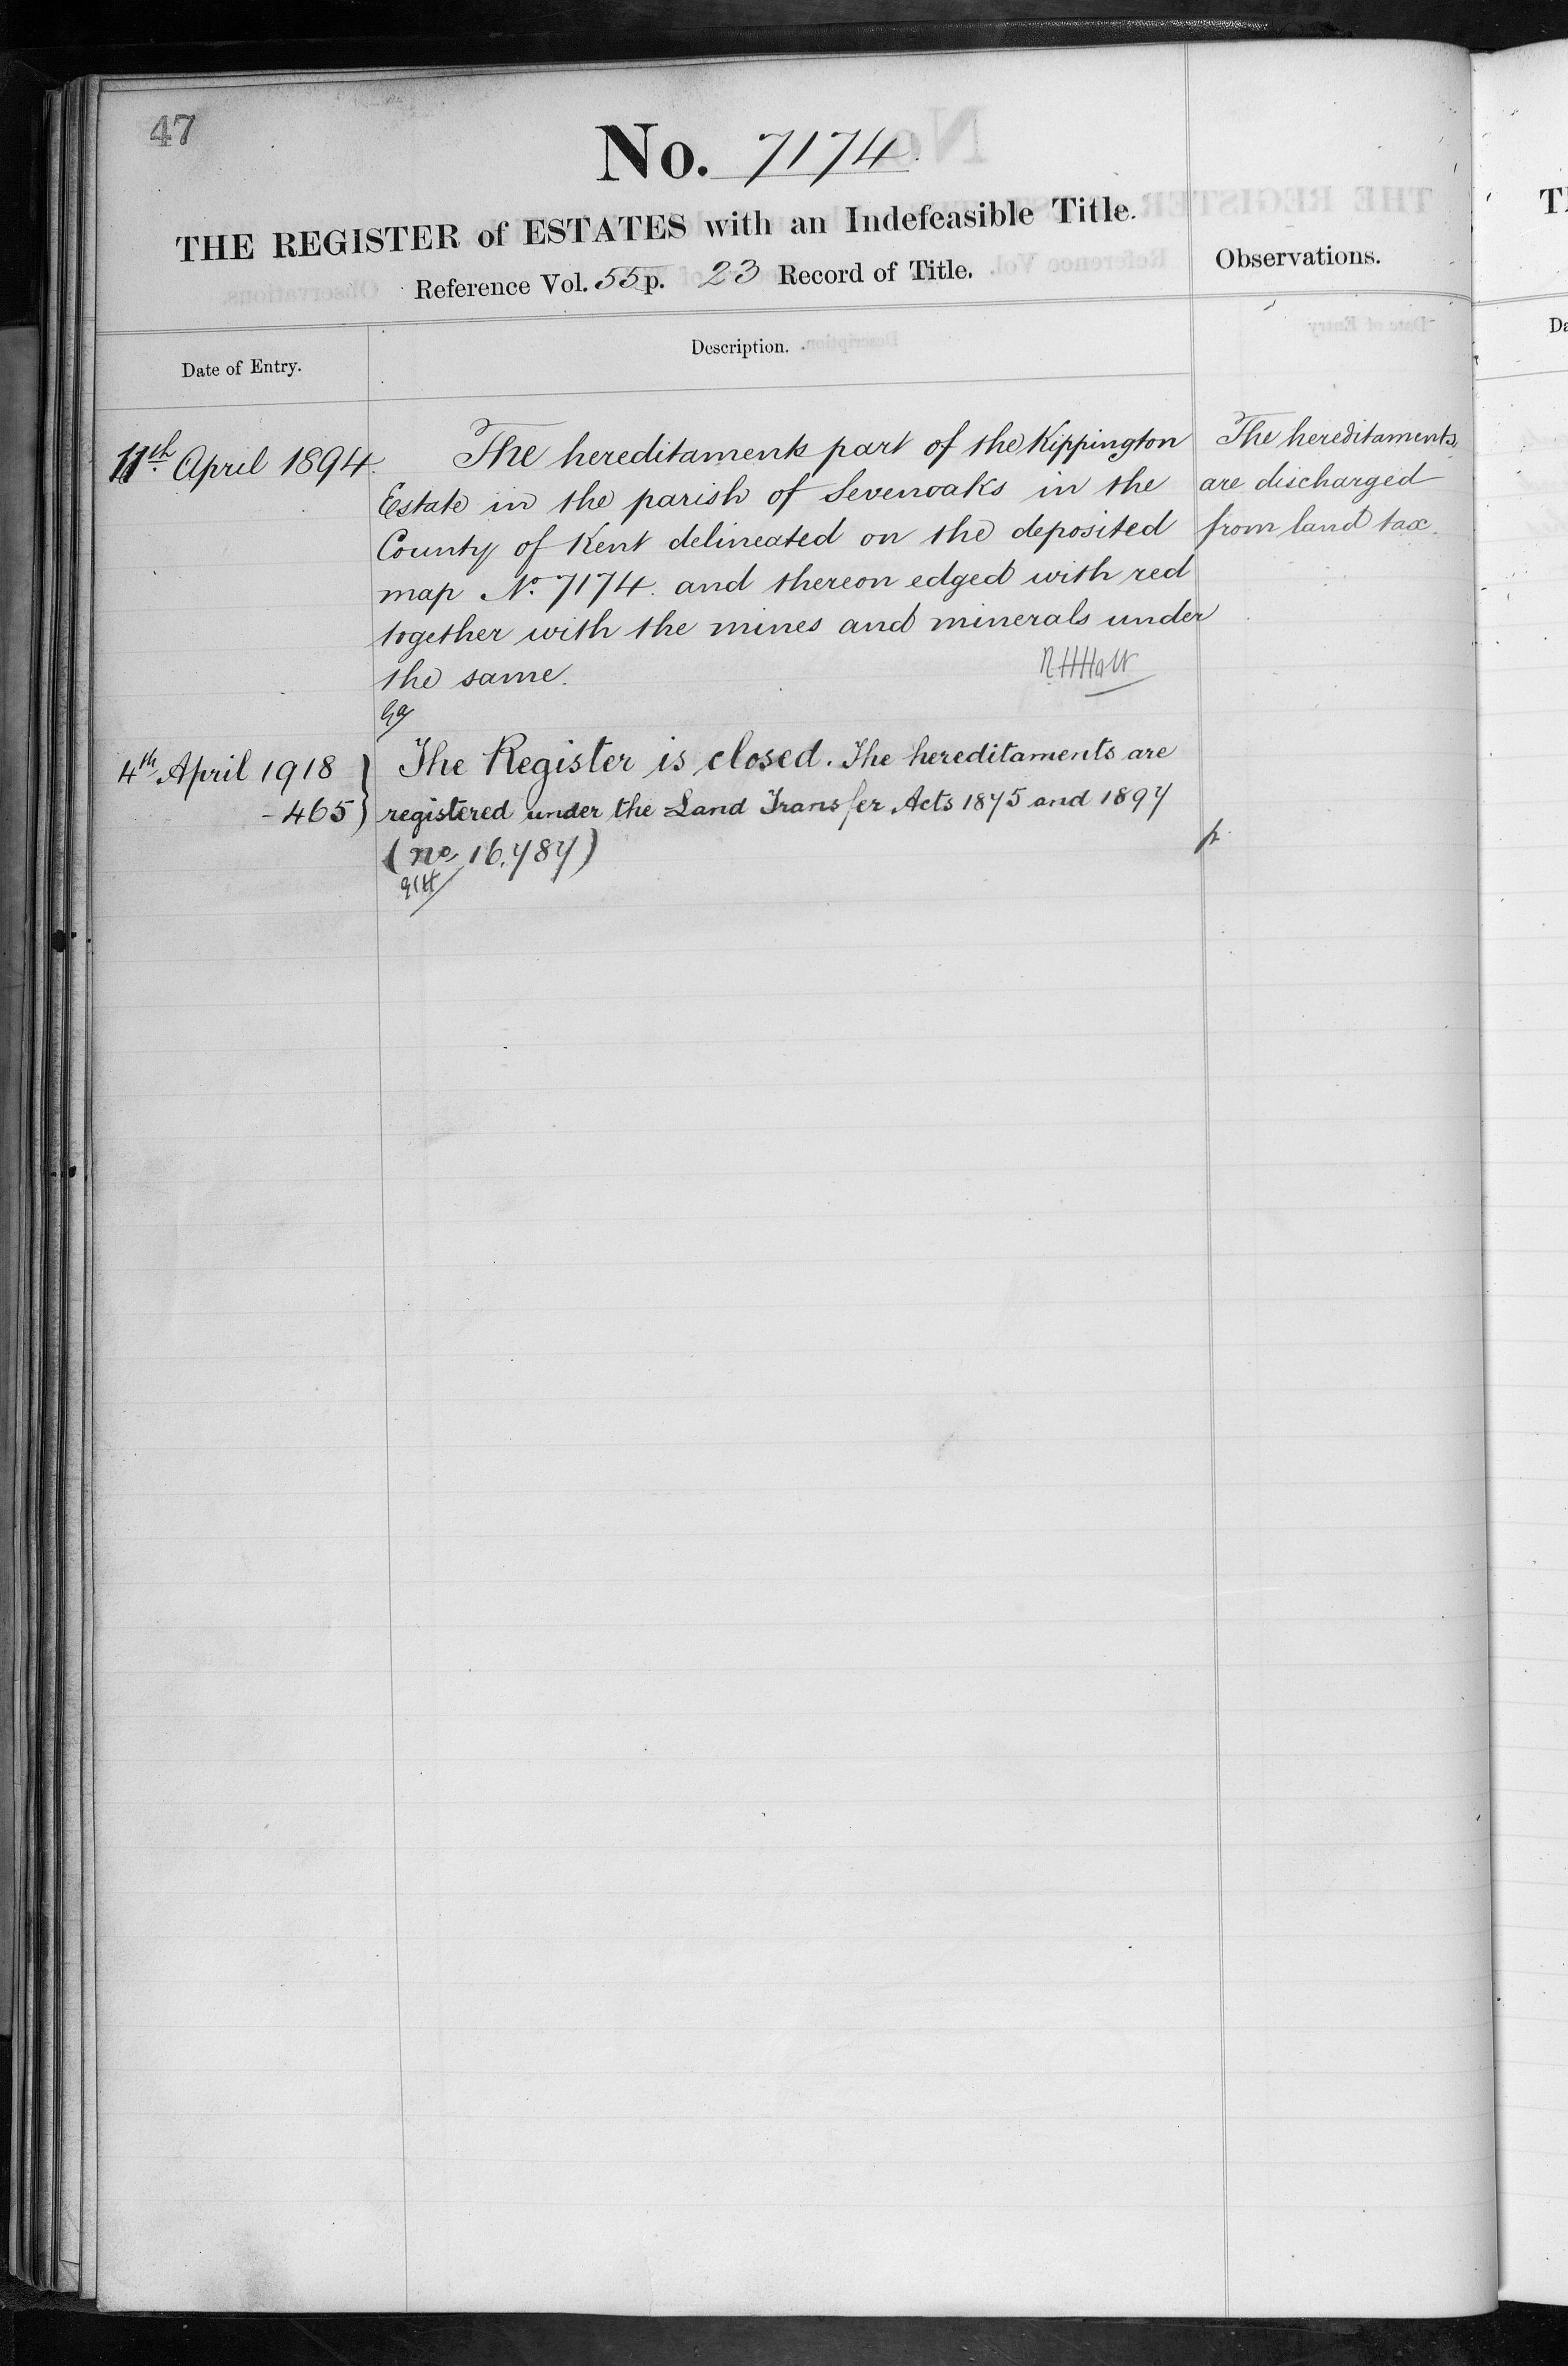 47
No. 7174.
THE REGISTER of ESTATES with an Indefeasible Title.
Reference Vol. 55 p. 23 Record of Title.
Observations.
Date of Entry.
Description.
11th. April 1894.
The hereditaments part of the Kippington
Estate in the parish of Sevenoaks in the
County of Kent delineated on the deposited
map No. 7174. and thereon edged with red
together with the mines and minerals under
the same.
The hereditaments,
are discharged
from land tax.
4th April 1918
-465
The Register is closed. The hereditaments are
registered under the Land Transfer Acts 1875 and 1897
(no 16,787)
T
Da